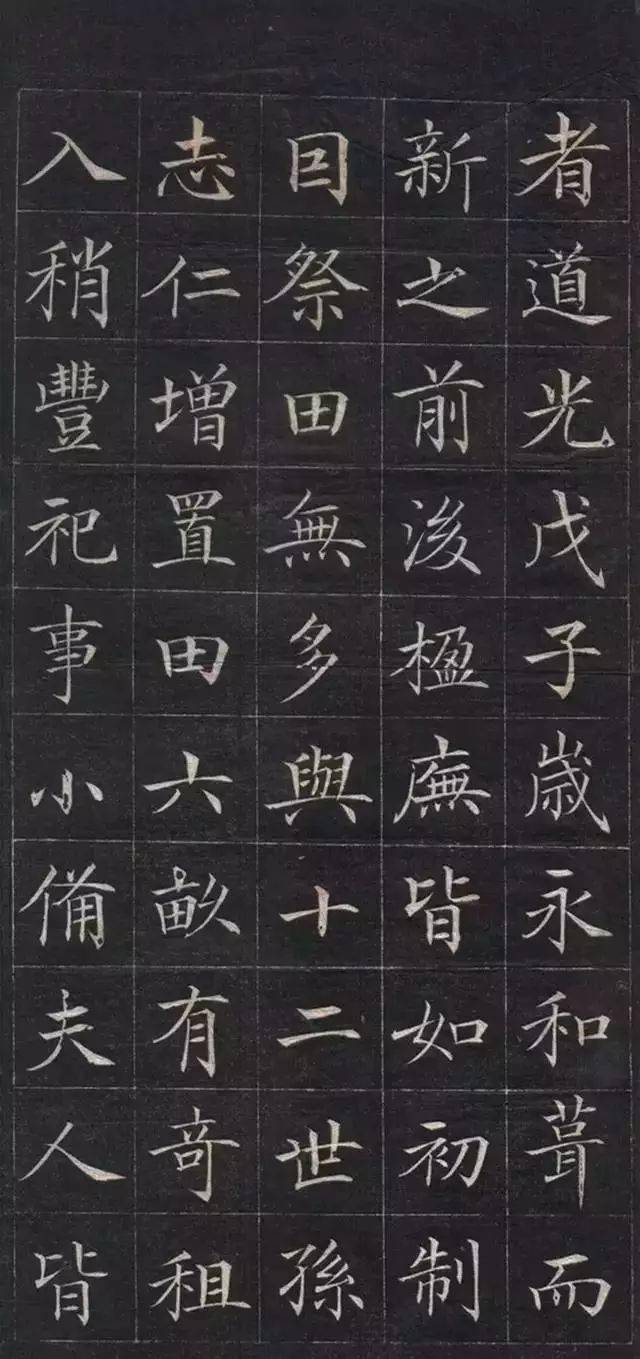 者道光戊子歳永和葺而
新之前後楹廡皆如初制
囙祭田無多與十二世孫
志仁增置田六畝有奇租
入稍豐祀事小備夫人皆